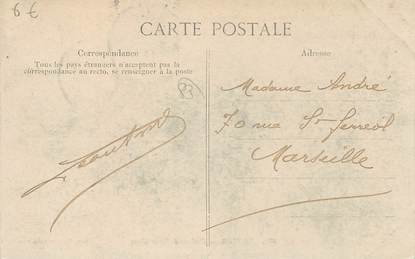 6 €
CARTE POSTALE
Correspondance
Tous les pays étrangers n'acceptent pas la
correspondance au recto, se renseigner à la poste
Adresse
83
Madame André
70 rue St Ferréol
Marseille